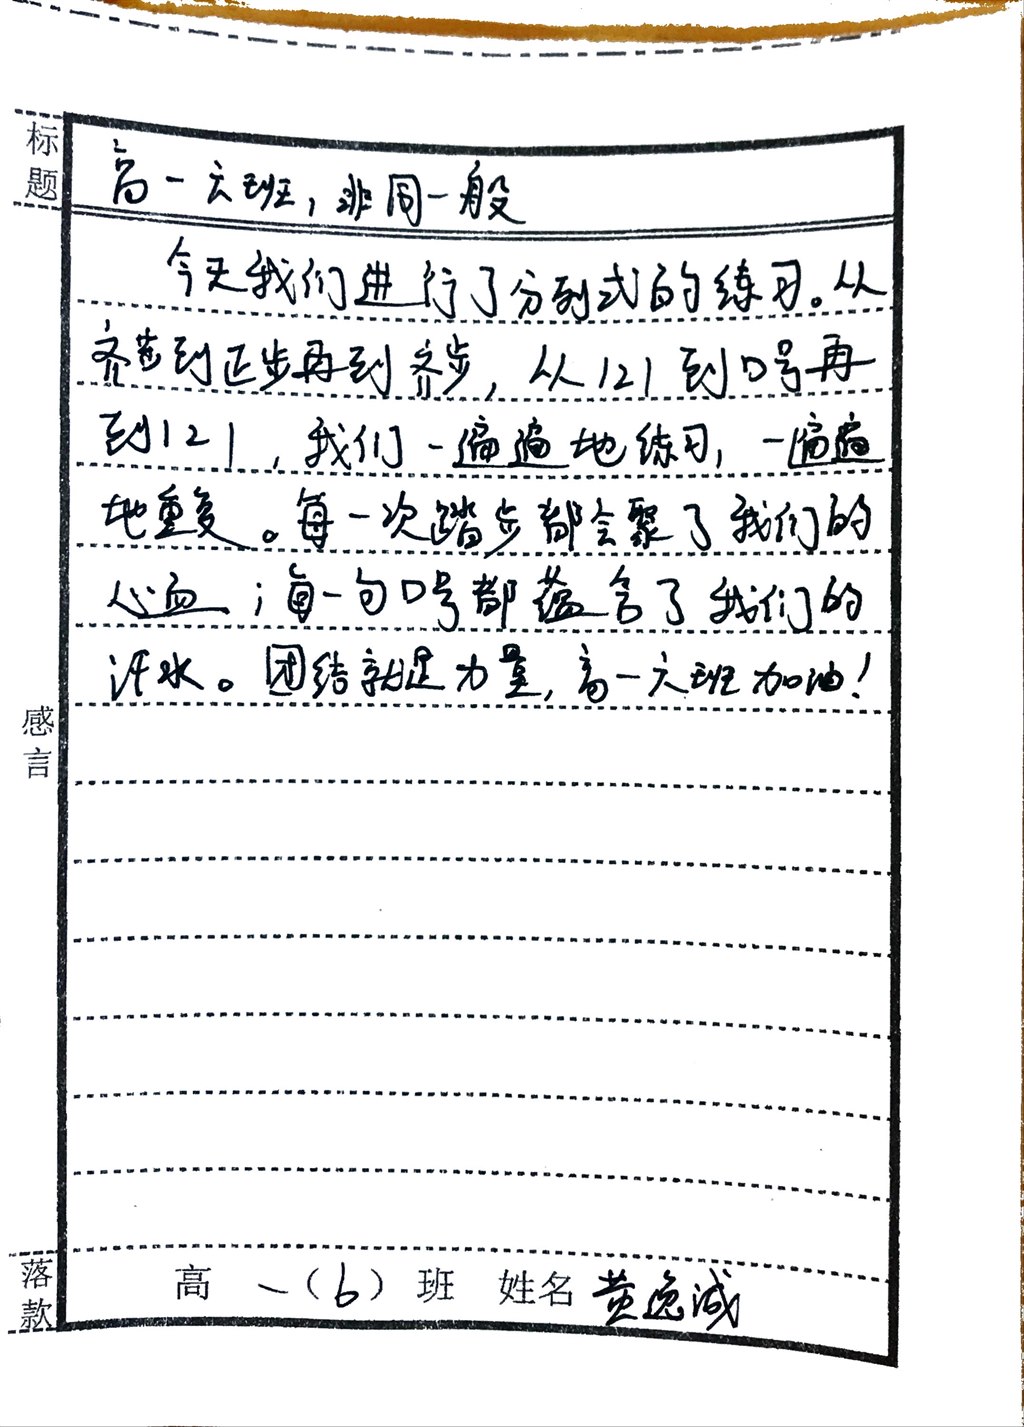 标题
高一六班，非同一般
今天我们进行了分列式的练习。从
齐步到正步再到齐步，从121到口号再
到121，我们一遍遍地练习，一遍遍
地重复。每一次踏步都会聚了我们的
心血；每一句口号都蕴含了我们的
汗水。团结就是力量，高一六班加油！
感言
落款
高一（6）班 姓名 黄逸诚